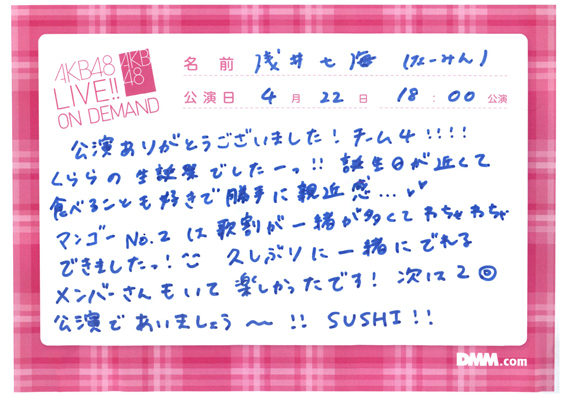 AKB48
LIVE!!
ON DEMAND
AKB
48
名前 浅井七海 (なーみん)
公演日 4月22日 18:00公演
公演ありがとうございました!チーム4!!!!
くららの生誕祭でしたーっ!!誕生日が近くて
食べることも好きで勝手に親近感...
マンゴーNo.2は歌割が一緒が多くてわちゃわちゃ
できましたっ! 久しぶりに一緒にでれる
メンバーさんもいて楽しかったです!次は2回
公演であいましょう〜!! SUSHI!!
DMM.com